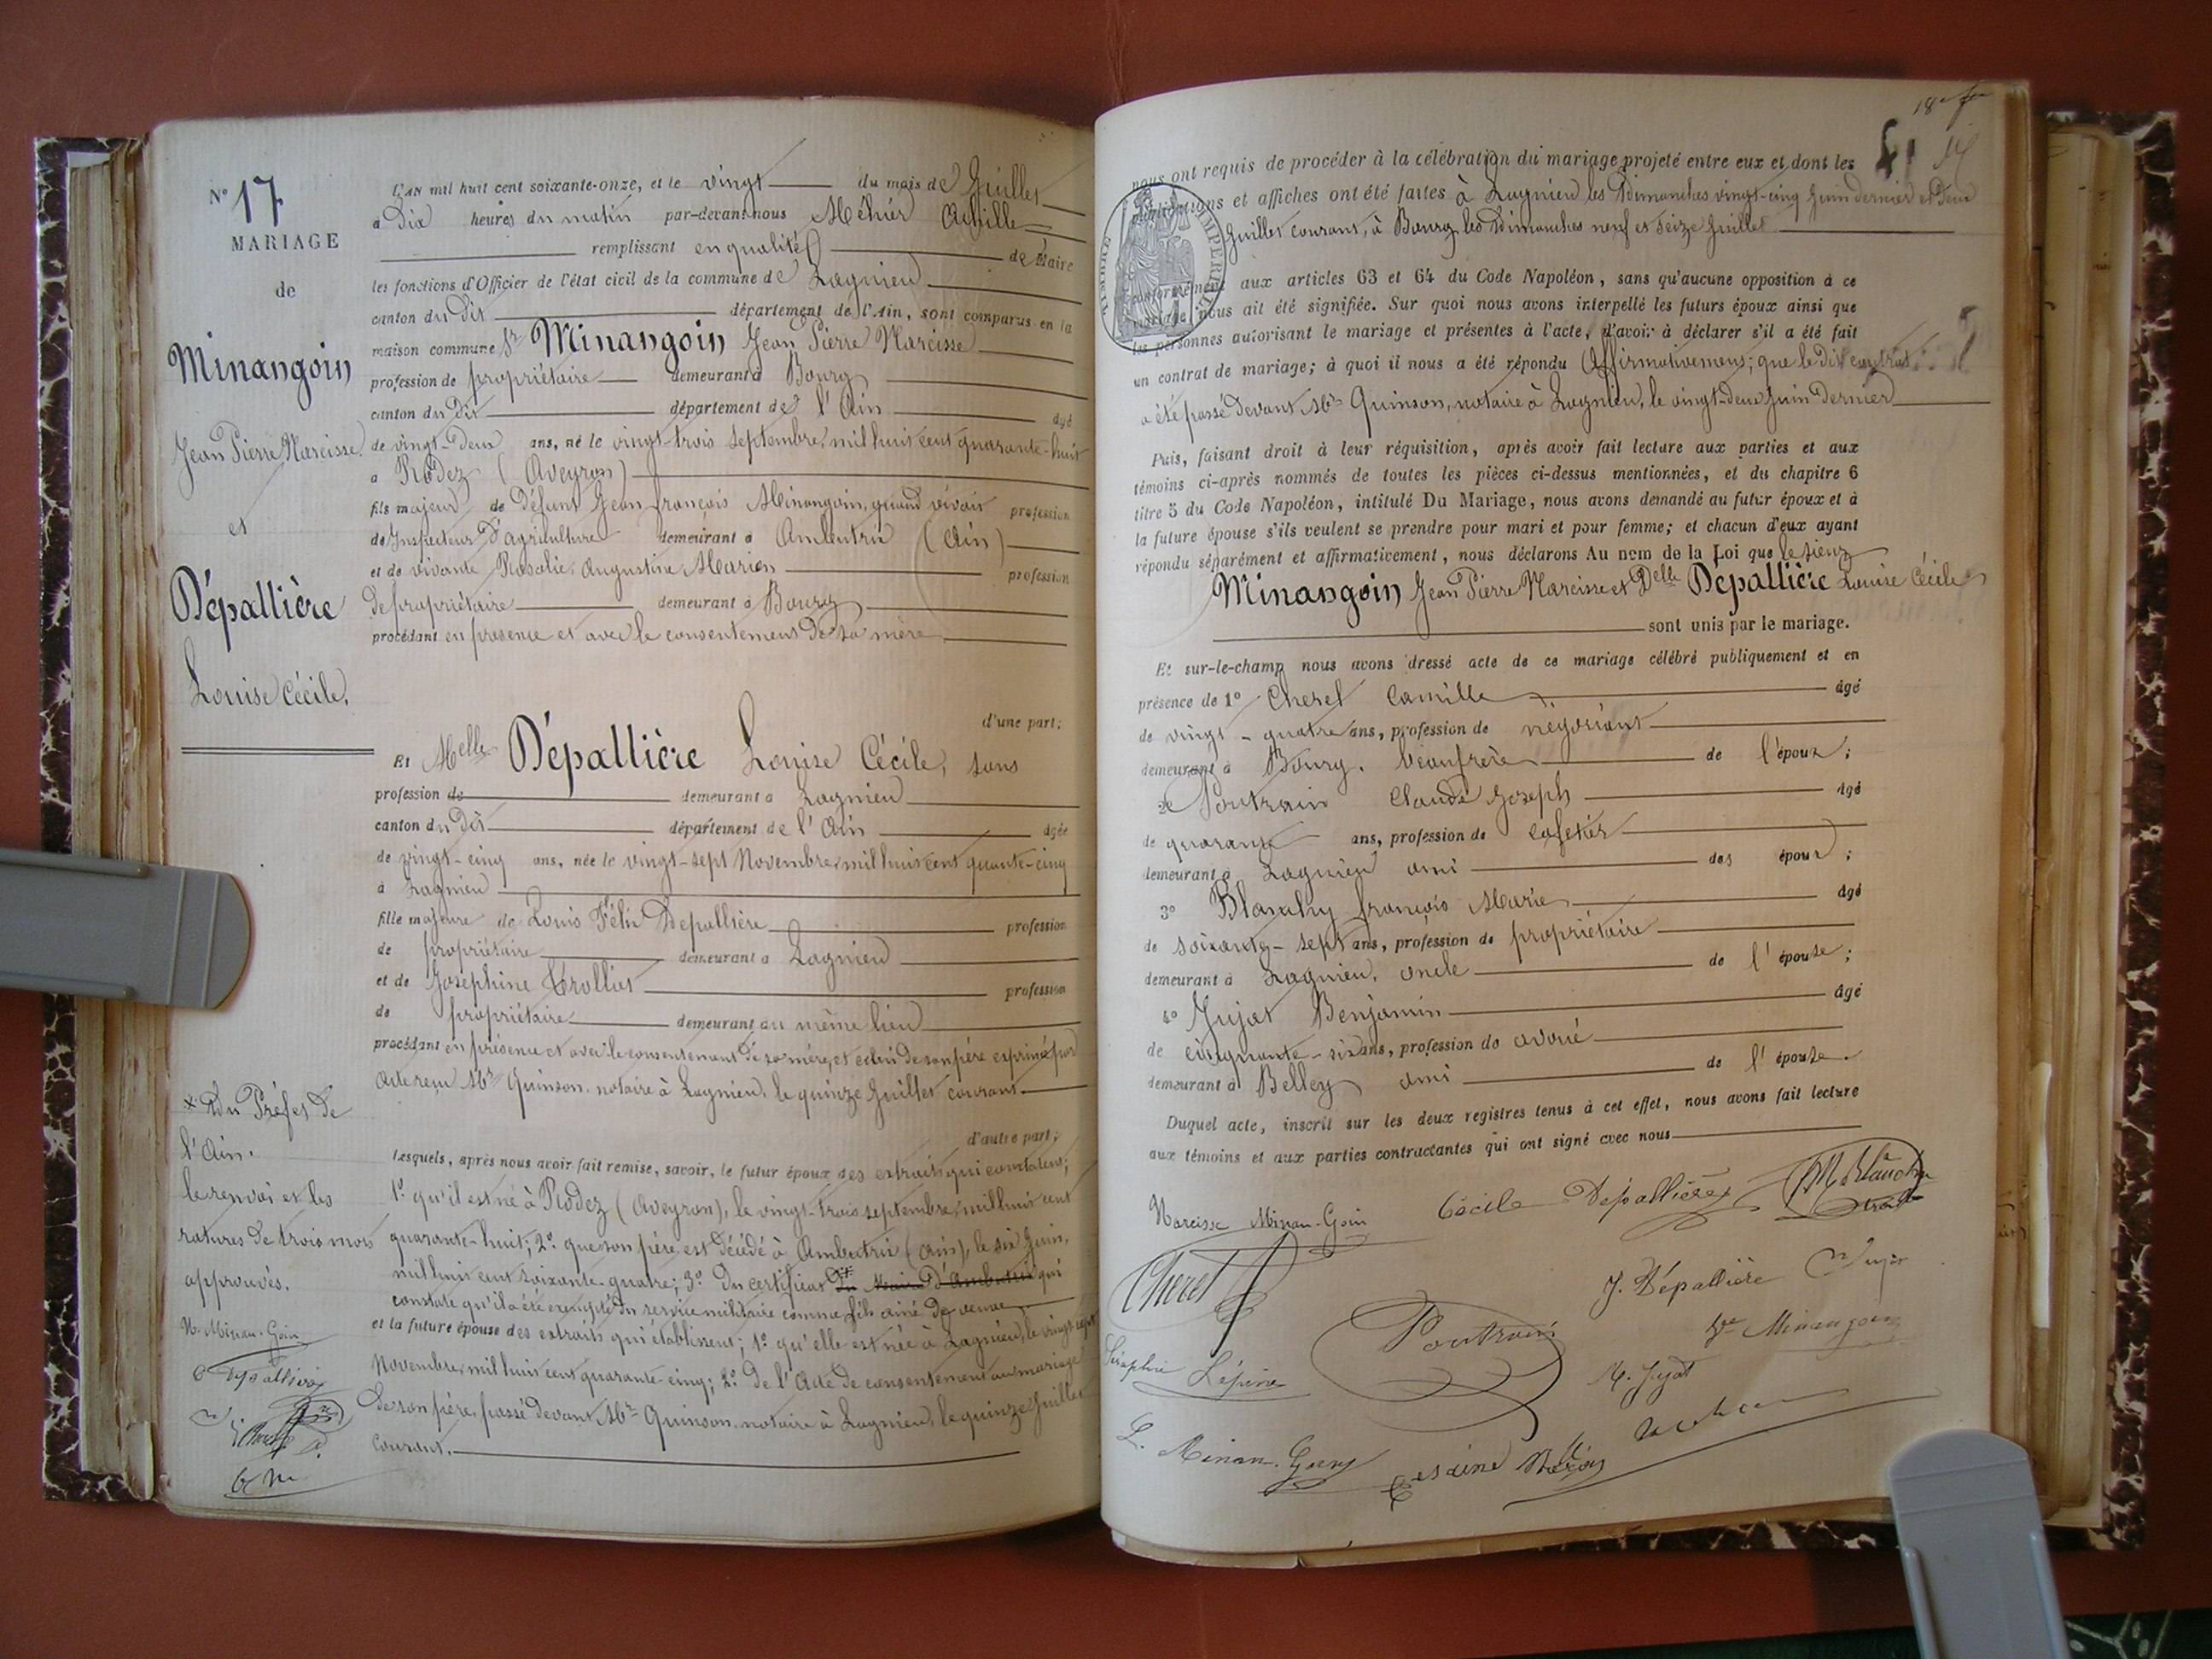 N° 17
MARIAGE
de
Minangoin
Jean Pierre Narcisse.
et
Dépallière
Louise Cécile.
L'AN mil huit cent soixante-onze, et le vingt du mois de Juillet
à Dix heures du matin par-devant nous Méhier Achille
remplissant en qualité de Maire
les fonctions d'Officier de l'état civil de la commune de Lagnieu
canton du Dit département de l'Ain, sont comparus en la
maison commune Sr Minangoin Jean Pierre Narcisse
profession de propriétaire demeurant à Bourg
canton du Dit département de l'Ain âgé
de vingt-Deux ans, né le vingt-trois septembre mil huit cent quarante-huit
à Rodez (Aveyron)
fils majeur de Défunt Jean françois Minangoin, quand vivait profession
de Inspecteur D'agriculture demeurant à Ambutrix (Ain)
et de vivante Rosalie Augustine Marion profession
De propriétaire demeurant à Bourg
procédant en présence et avec le consentement De sa mère
d'une part;
Et Melle Dépallière Louise Cécile, sans
profession de demeurant à Lagnieu
canton du Dit département de l'Ain âgée
de vingt-cinq ans, née le vingt-sept Novembre mil huit cent quante-cinq
à Lagnieu
fille majeure de Louis Félix Depallière profession
de propriétaire demeurant à Lagnieu
et de Josephine Trolliet profession
de propriétaire demeurant au même lieu
procédant en présence et avec le consentement de sa mère, et celui de son père exprimé par
acte reçu Me Quinson, notaire à Lagnieu, le quinze Juillet courant
d'autre part;
Lesquels, après nous avoir fait remise, savoir, le futur époux des extraits qui constatent;
1° qu'il est né à Rodez (Aveyron), le vingt-trois septembre mil huit cent
quarante-huit; 2° que son père est Décédé à Ambutrix (Ain), le six Juin,
mil huit cent soixante-quatre; 3° Du certificat du Maire d'Ambutrix qui
constate qu'il a été exempté du service militaire comme fils ainé De veuve
et la future épouse des extraits qui établissent; 1° qu'elle est née à Lagnieu, le vingt-sept
Novembre mil huit cent quarante-cinq; 2° De l'Acte De consentement au mariage
De son père, passé devant Me Quinson, notaire à Lagnieu, le quinze Juillet
courant.
x Du Préfet De
l'Ain.
le renvoi et les
ratures De trois mots
approuvés.
N. Minan-Goin
C Depallière
18e
nous ont requis de procéder à la célébration du mariage projeté entre eux et dont les
publications et affiches ont été faites à Lagnieu les Dimanches vingt-cinq Juin dernier et Deux
Juillet courant, à Bourg les Dimanches neuf et seize Juillet
conformément aux articles 63 et 64 du Code Napoléon, sans qu'aucune opposition à ce
mariage nous ait été signifiée. Sur quoi nous avons interpellé les futurs époux ainsi que
les personnes autorisant le mariage et présentes à l'acte, d'avoir à déclarer s'il a été fait
un contrat de mariage; à quoi il nous a été répondu Affirmativement; que le Dit contrat
a été passé Devant Me Quinson, notaire à Lagnieu, le vingt-Deux Juin Dernier
Puis, faisant droit à leur réquisition, après avoir fait lecture aux parties et aux
témoins ci-après nommés de toutes les pièces ci-dessus mentionnées, et du chapitre 6
titre 5 du Code Napoléon, intitulé Du Mariage, nous avons demandé au futur époux et à
la future épouse s'ils veulent se prendre pour mari et pour femme; et chacun d'eux ayant
répondu séparément et affirmativement, nous déclarons Au nom de la Loi que le sieur
Minangoin Jean Pierre Narcisse et Delle Dépallière Louise Cécile
sont unis par le mariage.
Et sur-le-champ nous avons dressé acte de ce mariage célébré publiquement et en
présence de 1° Cheret Camille âgé
de vingt-quatre ans, profession de négociant
demeurant à Bourg. beaufrère de l'époux;
2° Poutrain Claude Joseph âgé
de quarante ans, profession de cafetier
demeurant à Lagnieu ami des époux;
3° Blanchy françois Marie âgé
de soixante-sept ans, profession de propriétaire
demeurant à Lagnieu, oncle de l'épouse;
4° Jujat Benjamin âgé
de cinquante-six ans, profession de avoué
demeurant à Belley ami de l'épouse.
Duquel acte, inscrit sur les deux registres tenus à cet effet, nous avons fait lecture
aux témoins et aux parties contractantes qui ont signé avec nous
Narcisse Minan-Goin Cécile Depallière
Cheret J. Dépallière Jujat
Poutrain Ve Minangoin
Séraphie Lépine M. Jujat
L. Minan-Goin